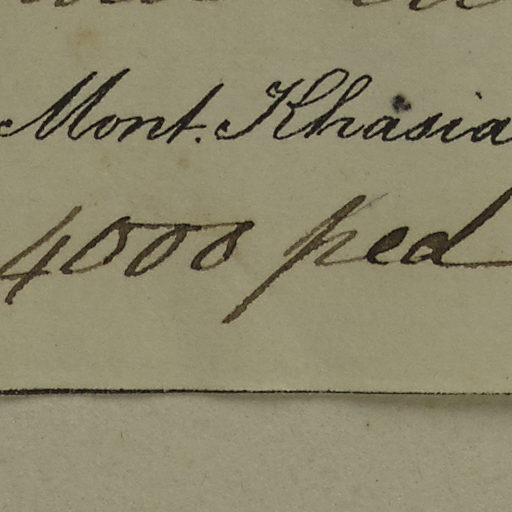 Mont. Khasia
4000 ped